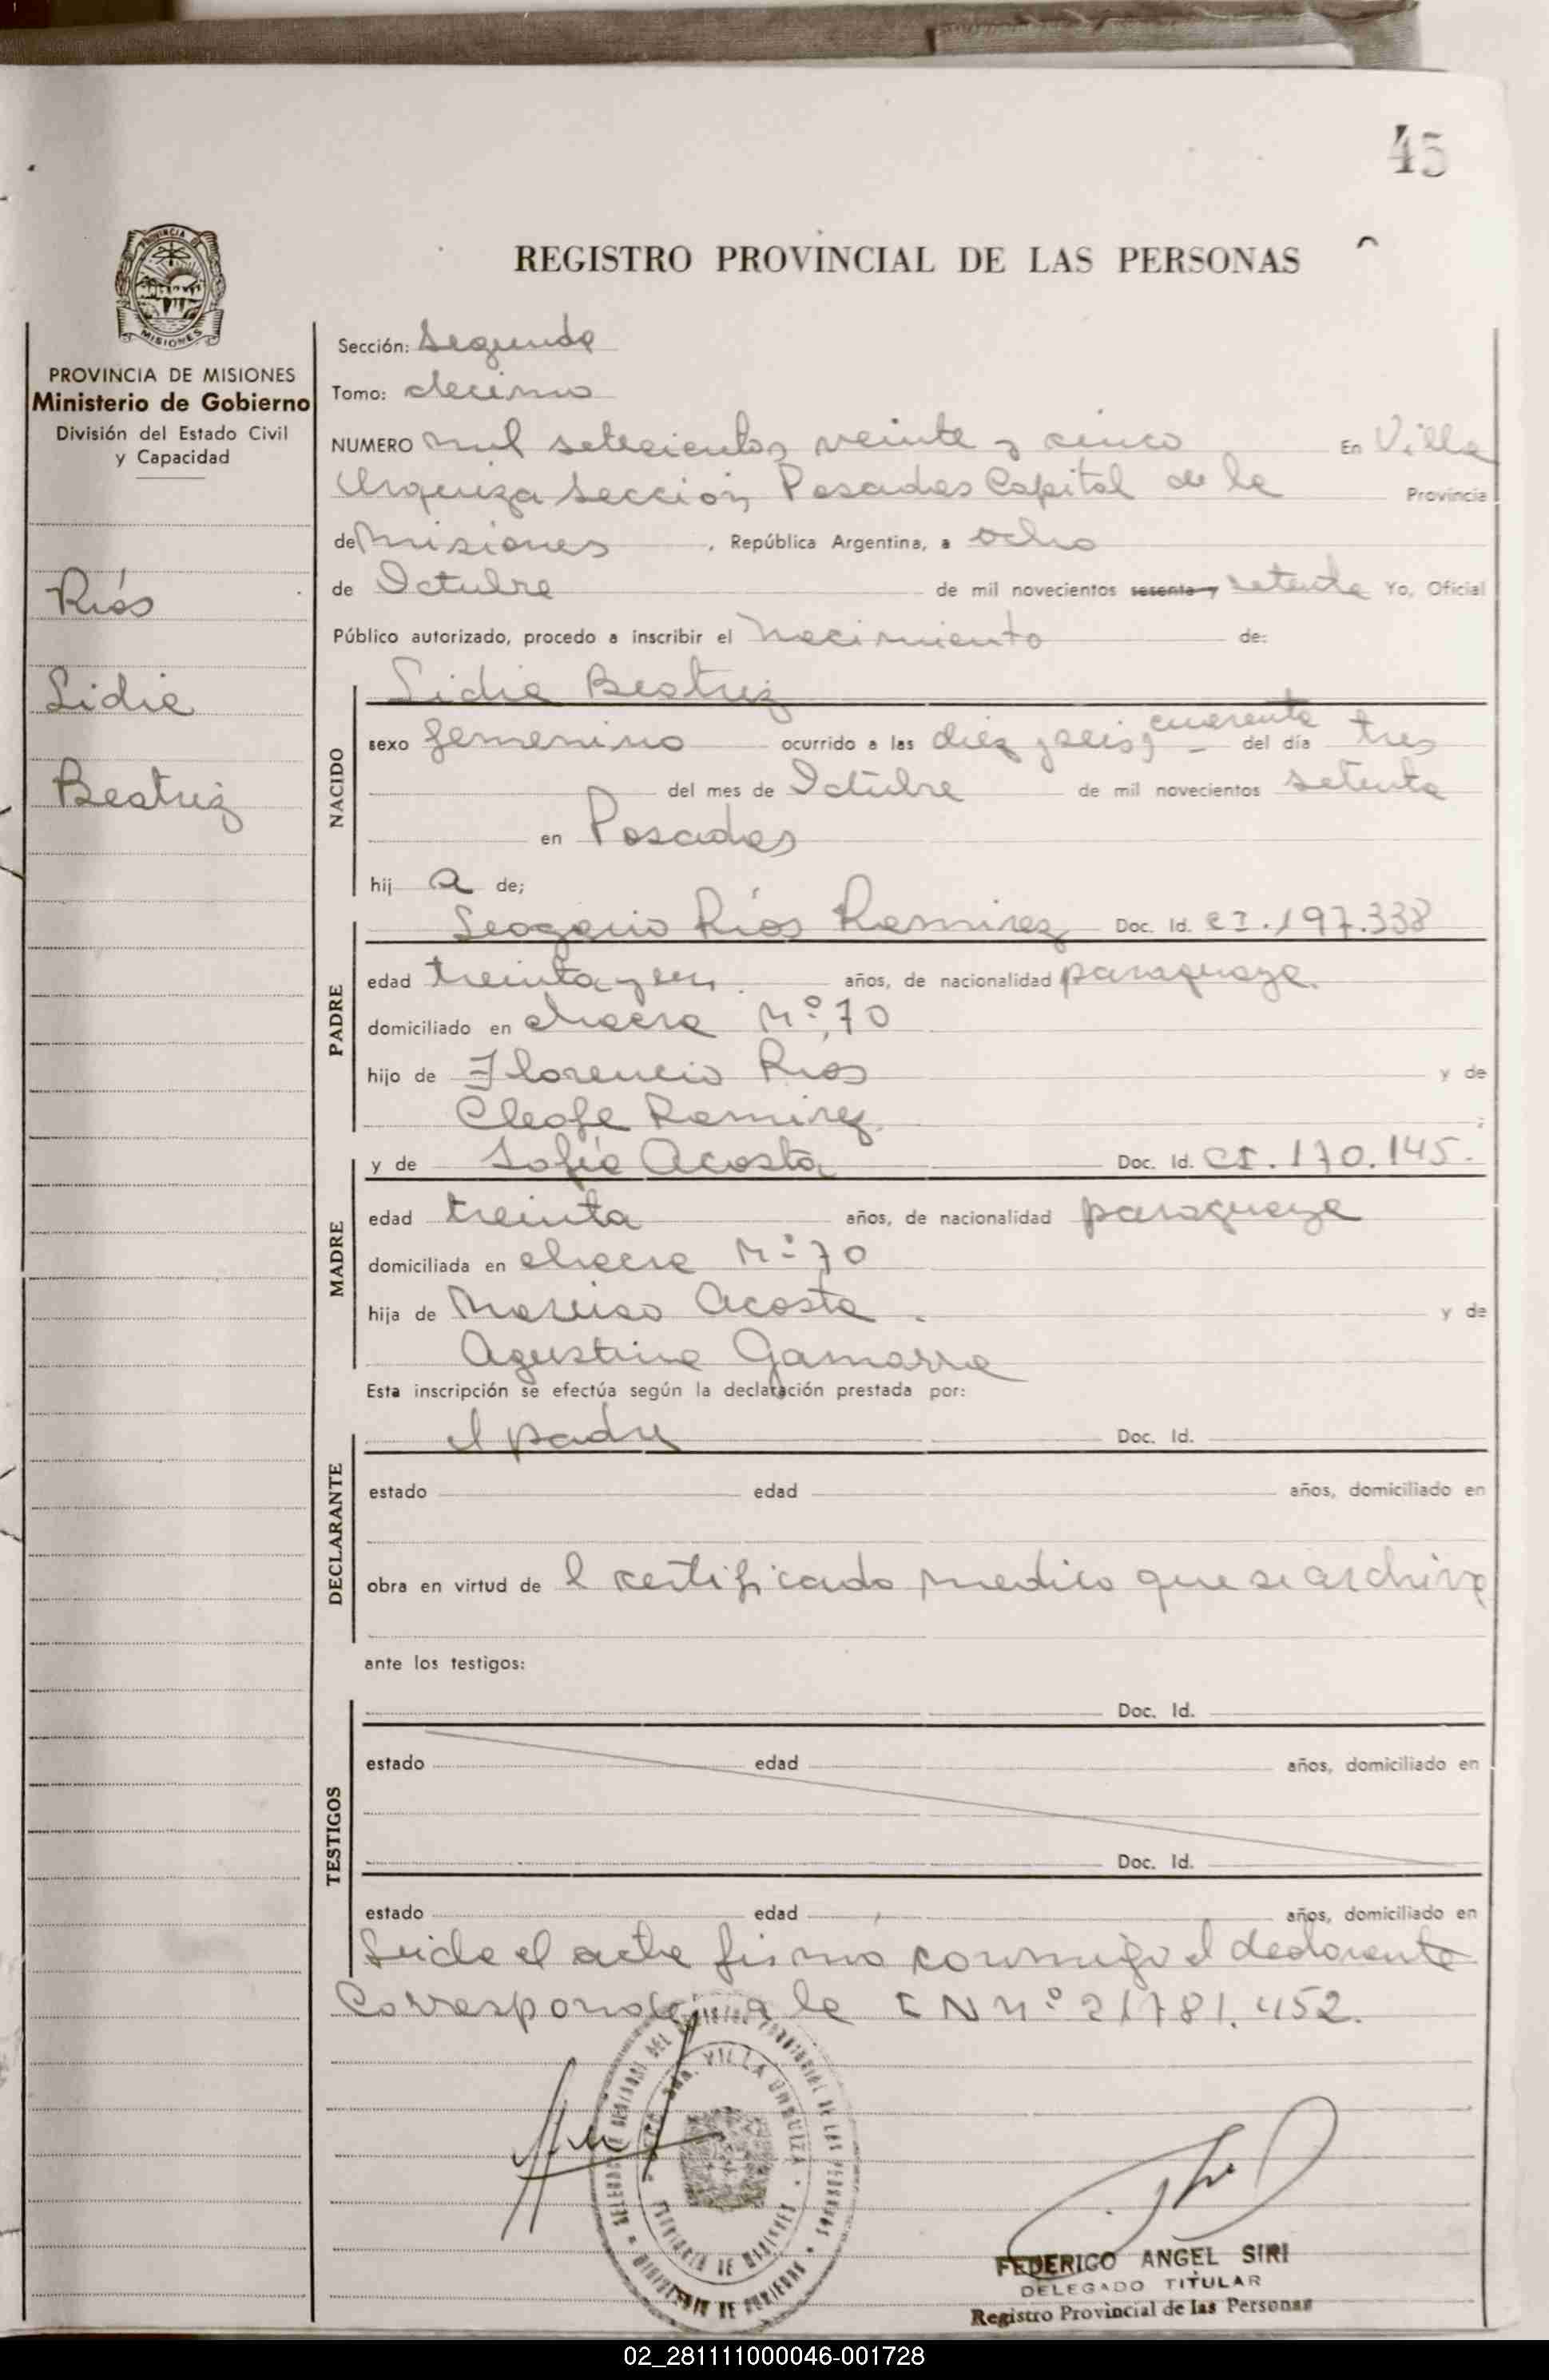 45
REGISTRO PROVINCIAL DE LAS PERSONAS
PROVINCIA DE MISIONES
Ministerio de Gobierno
División del Estado Civil
y Capacidad
Ríos
Lidia
Beatriz
Sección: Segunda
Tomo: decimo
NUMERO mil setecientos veinte y cinco En Villa
Urquiza Sección Posadas Capital de la Provincia
de Misiones , República Argentina, a ocho
de Octubre de mil novecientos sesenta y setenta Yo, Oficial
Público autorizado, procedo a inscribir el nacimiento de:
Lidia Beatriz
NACIDO
sexo femenino ocurrido a las diez y seis y cuarenta del día tres
del mes de Octubre de mil novecientos setenta
en Posadas
hij a de;
Ríos Ramirez Doc. Id. CI.197.338
PADRE
edad treinta y años, de nacionalidad paraguaya.
domiciliado en chacra Nº 70
hijo de Florencio Ríos y de
Cleofe Ramirez ;
y de Sofía Acosta Doc. Id. CI.170.145.
MADRE
edad treinta años, de nacionalidad paraguaya
domiciliada en chacra Nº 70
hija de Narciso Acosta y de
Agustina Gamarra
Esta inscripción se efectúa según la declaración prestada por:
el padre Doc. Id.
DECLARANTE
estado edad años, domiciliado en
obra en virtud de l certificado medico que se archiva
ante los testigos:
Doc. Id.
TESTIGOS
estado edad años, domiciliado en
Doc. Id.
estado edad años, domiciliado en
Leida el acta firma conmigo el declarante
Corresponde a la Nº 21781.452.
VILLA URQUIZA
PROVINCIA DE MISIONES
MINISTERIO DE GOBIERNO
FEDERICO ANGEL SIRI
DELEGADO TITULAR
Registro Provincial de las Personas
02_281111000046-001728